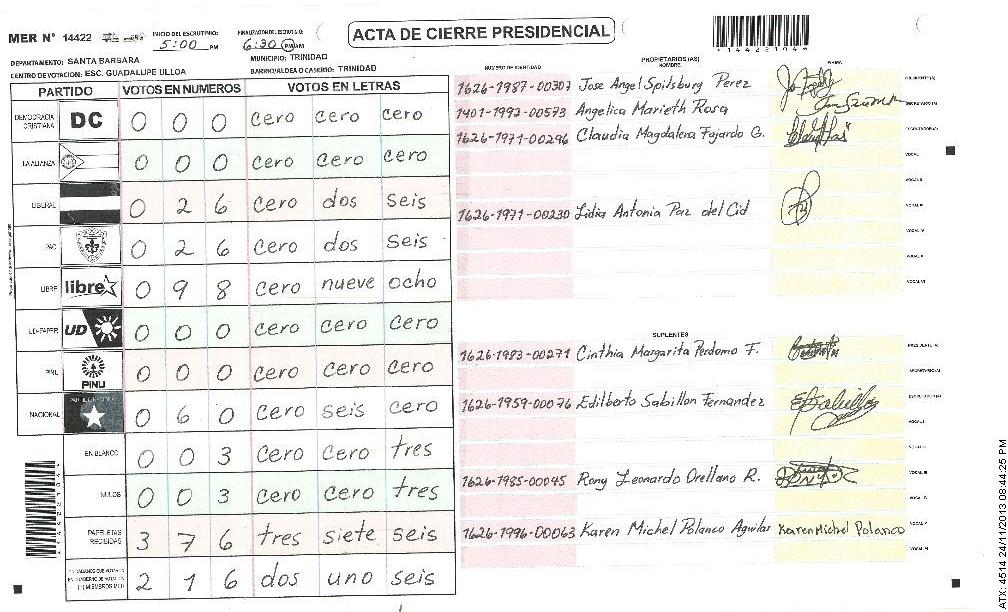 MER Nº 14422
INICIO DEL ESCRUTINIO: 5:00 PM
FINALIZACION DE ESCRUTINIO: 6:30 PM AM
ACTA DE CIERRE PRESIDENCIAL
DEPARTAMENTO: SANTA BARBARA
MUNICIPIO: TRINIDAD
CENTRO DE VOTACION: ESC. GUADALUPE ULLOA
BARRIO/ALDEA O CASERIO: TRINIDAD
PARTIDO VOTOS EN NUMEROS VOTOS EN LETRAS
DEMOCRACIA CRISTIANA DC 0 0 0 cero cero cero
LA ALIANZA 0 0 0 cero cero cero
LIBERAL 0 2 6 cero dos seis
PAC 0 2 6 cero dos seis
LIBRE libre 0 9 8 cero nueve ocho
UD-FAPER UD 0 0 0 cero cero cero
PINU PINU 0 0 0 cero cero cero
NACIONAL 0 6 0 cero seis cero
EN BLANCO 0 0 3 cero cero tres
NULOS 0 0 3 cero cero tres
PAPELETAS RECIBIDAS 3 7 6 tres siete seis
CIUDADANOS QUE VOTARON 2 1 6 dos uno seis
*144221044*
PROPIETARIOS (AS)
NUMERO DE IDENTIDAD NOMBRE FIRMA
1626-1987-00307 Jose Angel Spilsburg Perez PRESIDENTE (A)
1401-1992-00573 Angelica Marieth Rosa SECRETARIO (A)
1626-1971-00296 Claudia Magdalena Fajardo G. ESCRUTADOR (A)
VOCAL I
VOCAL II
1626-1971-00230 Lidia Antonia Paz del Cid VOCAL III
VOCAL IV
VOCAL V
VOCAL VI
SUPLENTES
1626-1983-00271 Cinthia Margarita Perdomo F. PRESIDENTE (A)
SECRETARIO (A)
1626-1959-00076 Edilberto Sabillon Fernandez ESCRUTADOR (A)
VOCAL I
VOCAL II
1626-1985-00045 Rony Leonardo Orellano R. VOCAL III
VOCAL IV
1626-1996-00063 Karen Michel Polanco Aguilar Karen Michel Polanco VOCAL V
VOCAL VI
ATX: 4514 24/11/2013 08:44:25 PM